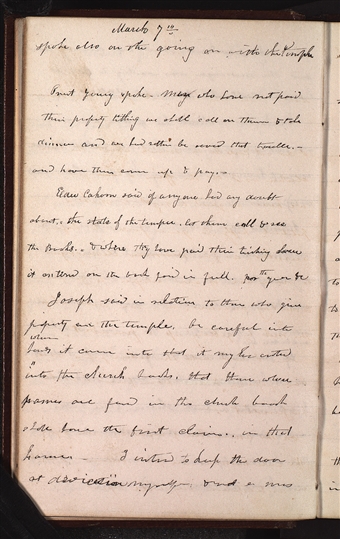 March 7th
spoke also on the going on with the Temple
Prest Young spoke. Many who have not paid
their property tithing we shall call on them & take
dinner and we had rather be saved that trouble.
and have them come up & pay.
Elder Cahoon said if anyone had any doubt
about the state of the temple, let them call & see
the Books. & where they have paid their tithing have
it entered on the book paid in full, for the year &c
Joseph said in relation to those who give
property on the temple. be careful into
whose
hands it comes into that it may be entered
into the church books, that those whose
names are found in the church books
shall have the first claim, in that
house – I intend to keep the door
at dedication myself & not a man